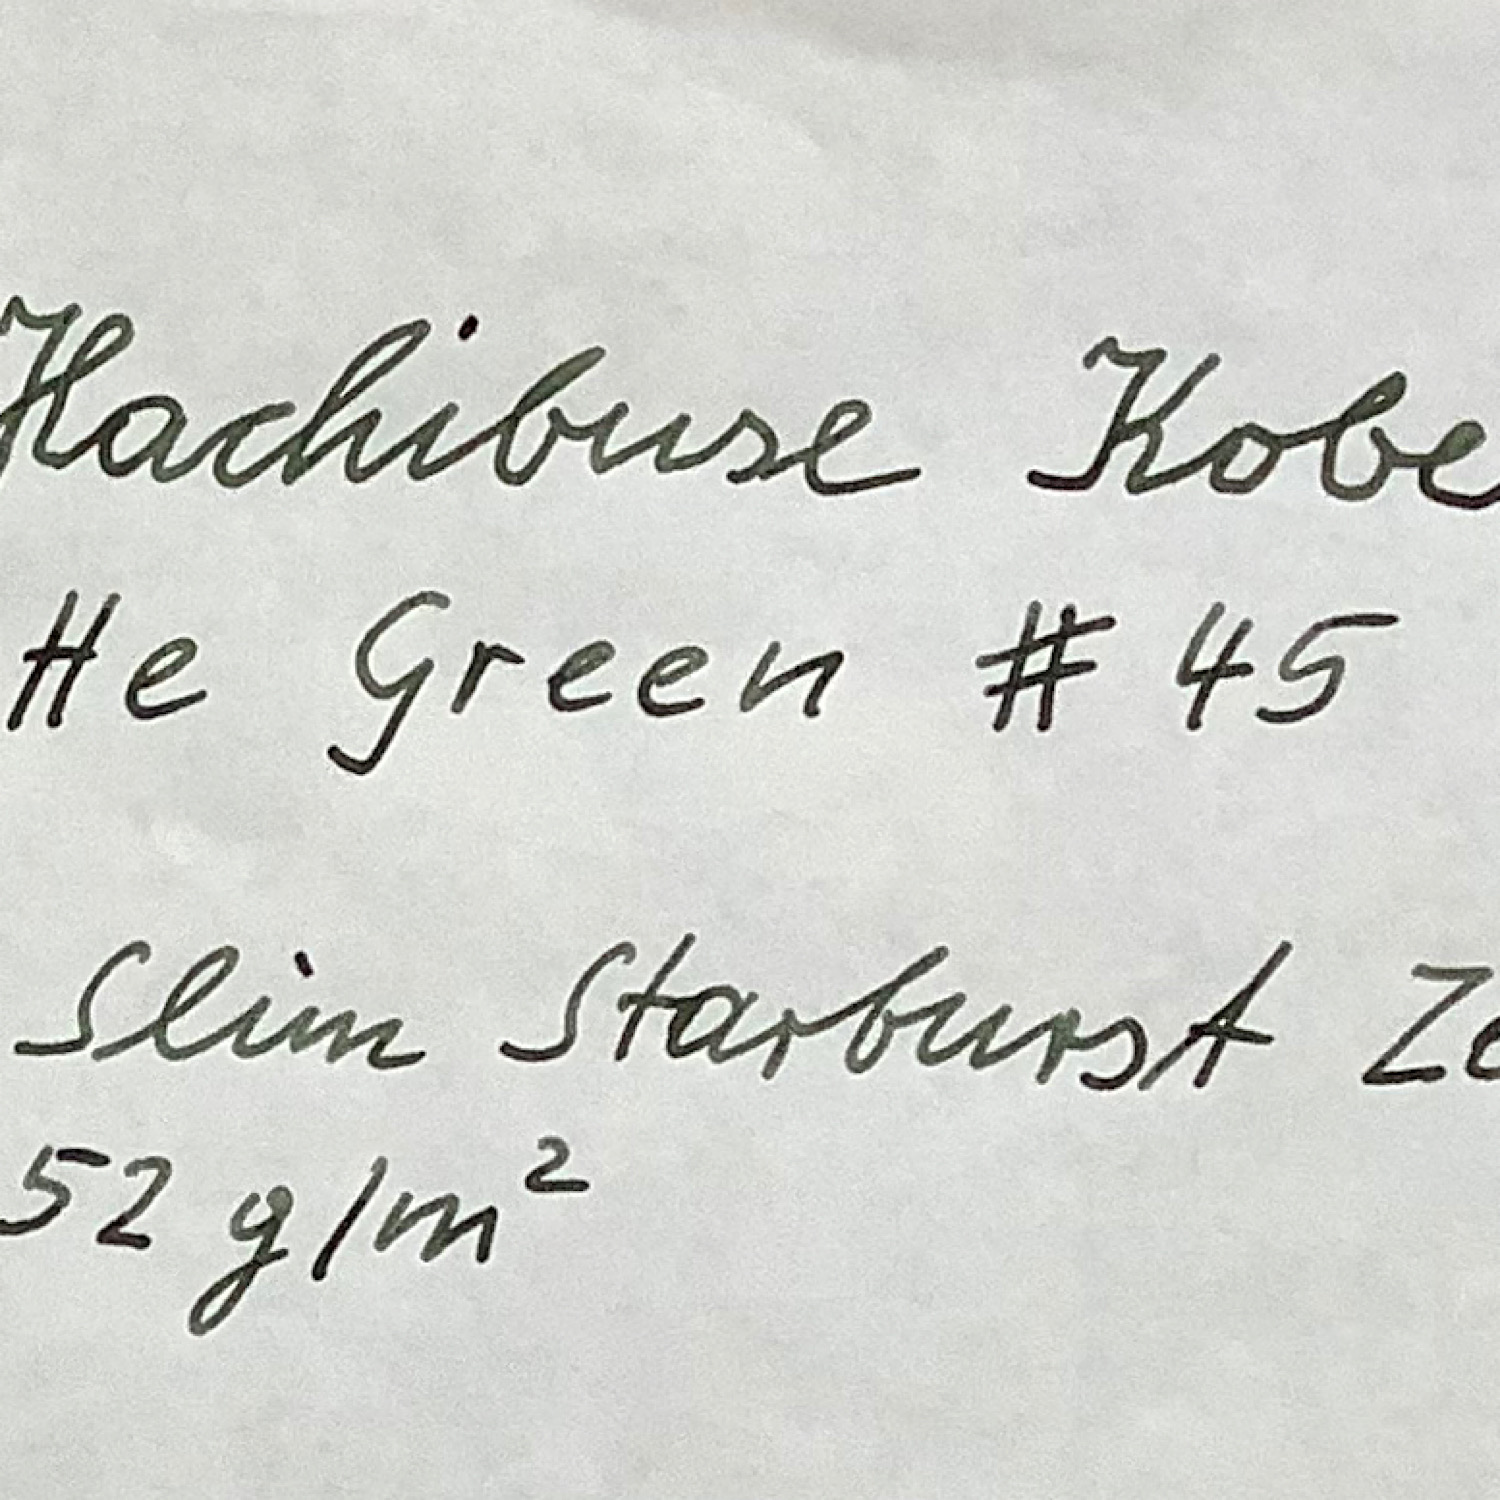 Hachibuse Kobe
He Green # 45
Slim Starburst
52 g/m²